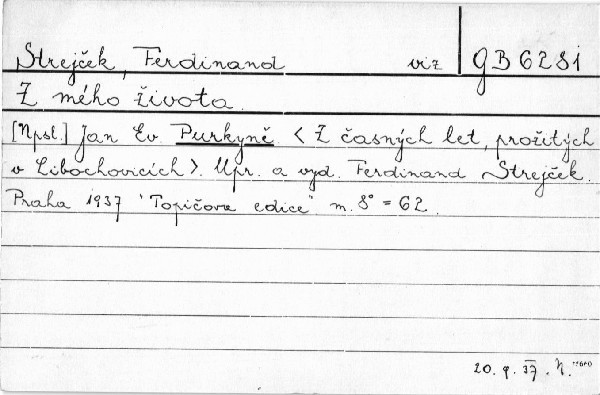 Strejček, Ferdinand viz GB 6281
Z mého života.
[Npsl.] Jan Ev. Purkyně < Z časných let, prožitých
v Libochovicích >. Upr. a vyd. Ferdinand Strejček.
Praha 1937 "Topičova edice" m. 8° = 62.
20. 9. 37. N.